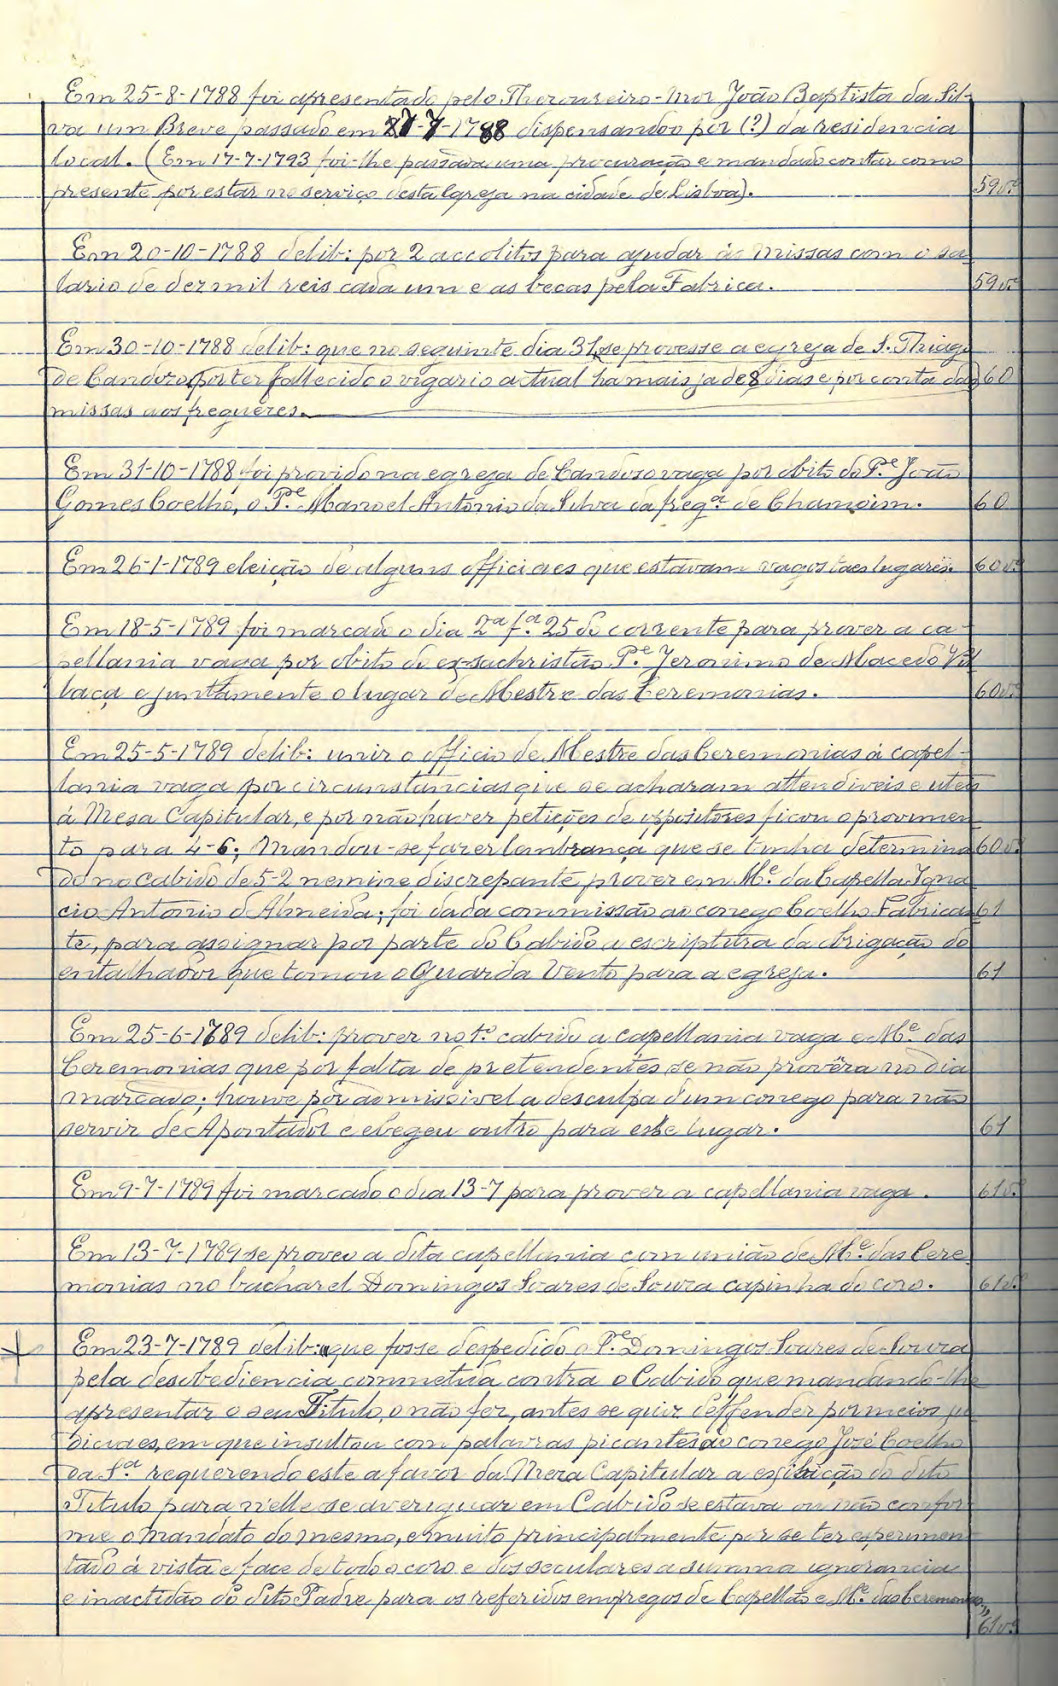 Em 25-8-1788 foi apresentado pelo Thezoureiro-Mor João Baptista da Sil-
va um Breve passado em 27-7-1788 dispensando-o por (?) da residencia
local. (Em 17-7-1793 foi-lhe passada uma procuração e mandado contar como
presente por estar no serviço desta Igreja na cidade de Lisboa). 59v.º
Em 20-10-1788 delib: por 2 accolitos para ajudar ás missas com o sa-
lario de dez mil reis cada um e as becas pela Fabrica. 59v.º
Em 30-10-1788 delib: que no seguinte dia 31 se provesse a egreja de S. Thiago
de Candozo, por ter fallecido o vigario actual ha mais ja de 8 dias e por conta das 60
missas aos freguezes.
Em 31-10-1788 foi provido na egreja de Candoso vaga por obito do P.e João
Gomes Coelho, o P.e Manoel Antonio da Silva da freg.a de Chamoim. 60
Em 26-1-1789 eleição de alguns officiaes que estavam vagos taes lugares. 60v.º
Em 18-5-1789 foi marcado o dia 2a f.a 25 do corrente para prover a ca-
pellania vaga por obito do ex-sachristão P.e Jeronimo de Macedo Vil
laça e juntamente o lugar de Mestre das Ceremonias. 60v.º
Em 25-5-1789 delib: unir o officio de Mestre das Ceremonias á capel-
lania vaga por circumstancias que se acharam attendiveis e uteis
á Mesa Capitular, e por não haver petições de oppositores ficou o provimen-
to para 4-6; Mandou-se fazer lembrança que se tinha determina 60v.º
do no Cabido de 5-2 nemine discrepante prover em M.e da Capella Igna
cio Antonio d'Almeida; foi dada commissão ao conego Coelho Fabrican 61
te, para assignar por parte do Cabido a escriptura da obrigação do
entalhador que tomou o Guarda Vento para a egreja. 61
Em 25-6-1789 delib: prover no 1.º cabido a capellania vaga e M.e das
Ceremonias que por falta de pretendentes se não provêra no dia
marcado; houve por admissivel a desculpa d'um conego para não
servir de Apontador e elegeu outro para este lugar. 61
Em 9-7-1789 foi marcado o dia 13-7 para prover a capellania vaga. 61v.º
Em 13-7-1789 se proveu a dita capellania com união de M.e das Cere
monias no bacharel Domingos Soares de Souza capinha do coro. 61v.º
Em 23-7-1789 delib: que fosse despedido o P.e Domingos Soares de Souza
pela desobediencia commetida contra o Cabido que mandando-lhe
apresentar o seu Titulo, o não fez, antes se quiz deffender por meios ju
diciaes, em que insultou com palavras picantes ao conego José Coelho
da S.a requerendo este a favor da Meza Capitular a exibição do dito
Titulo para n'elle se averiguar em Cabido se estava ou não confor
me o mandato do mesmo, e muito principalmente por se ter experimen
tado á vista e face de todo o coro e dos seculares a summa ignorancia
e inactidão do dito Padre para os referidos empregos de Capellão e M.e das Ceremonias,,
61v.º